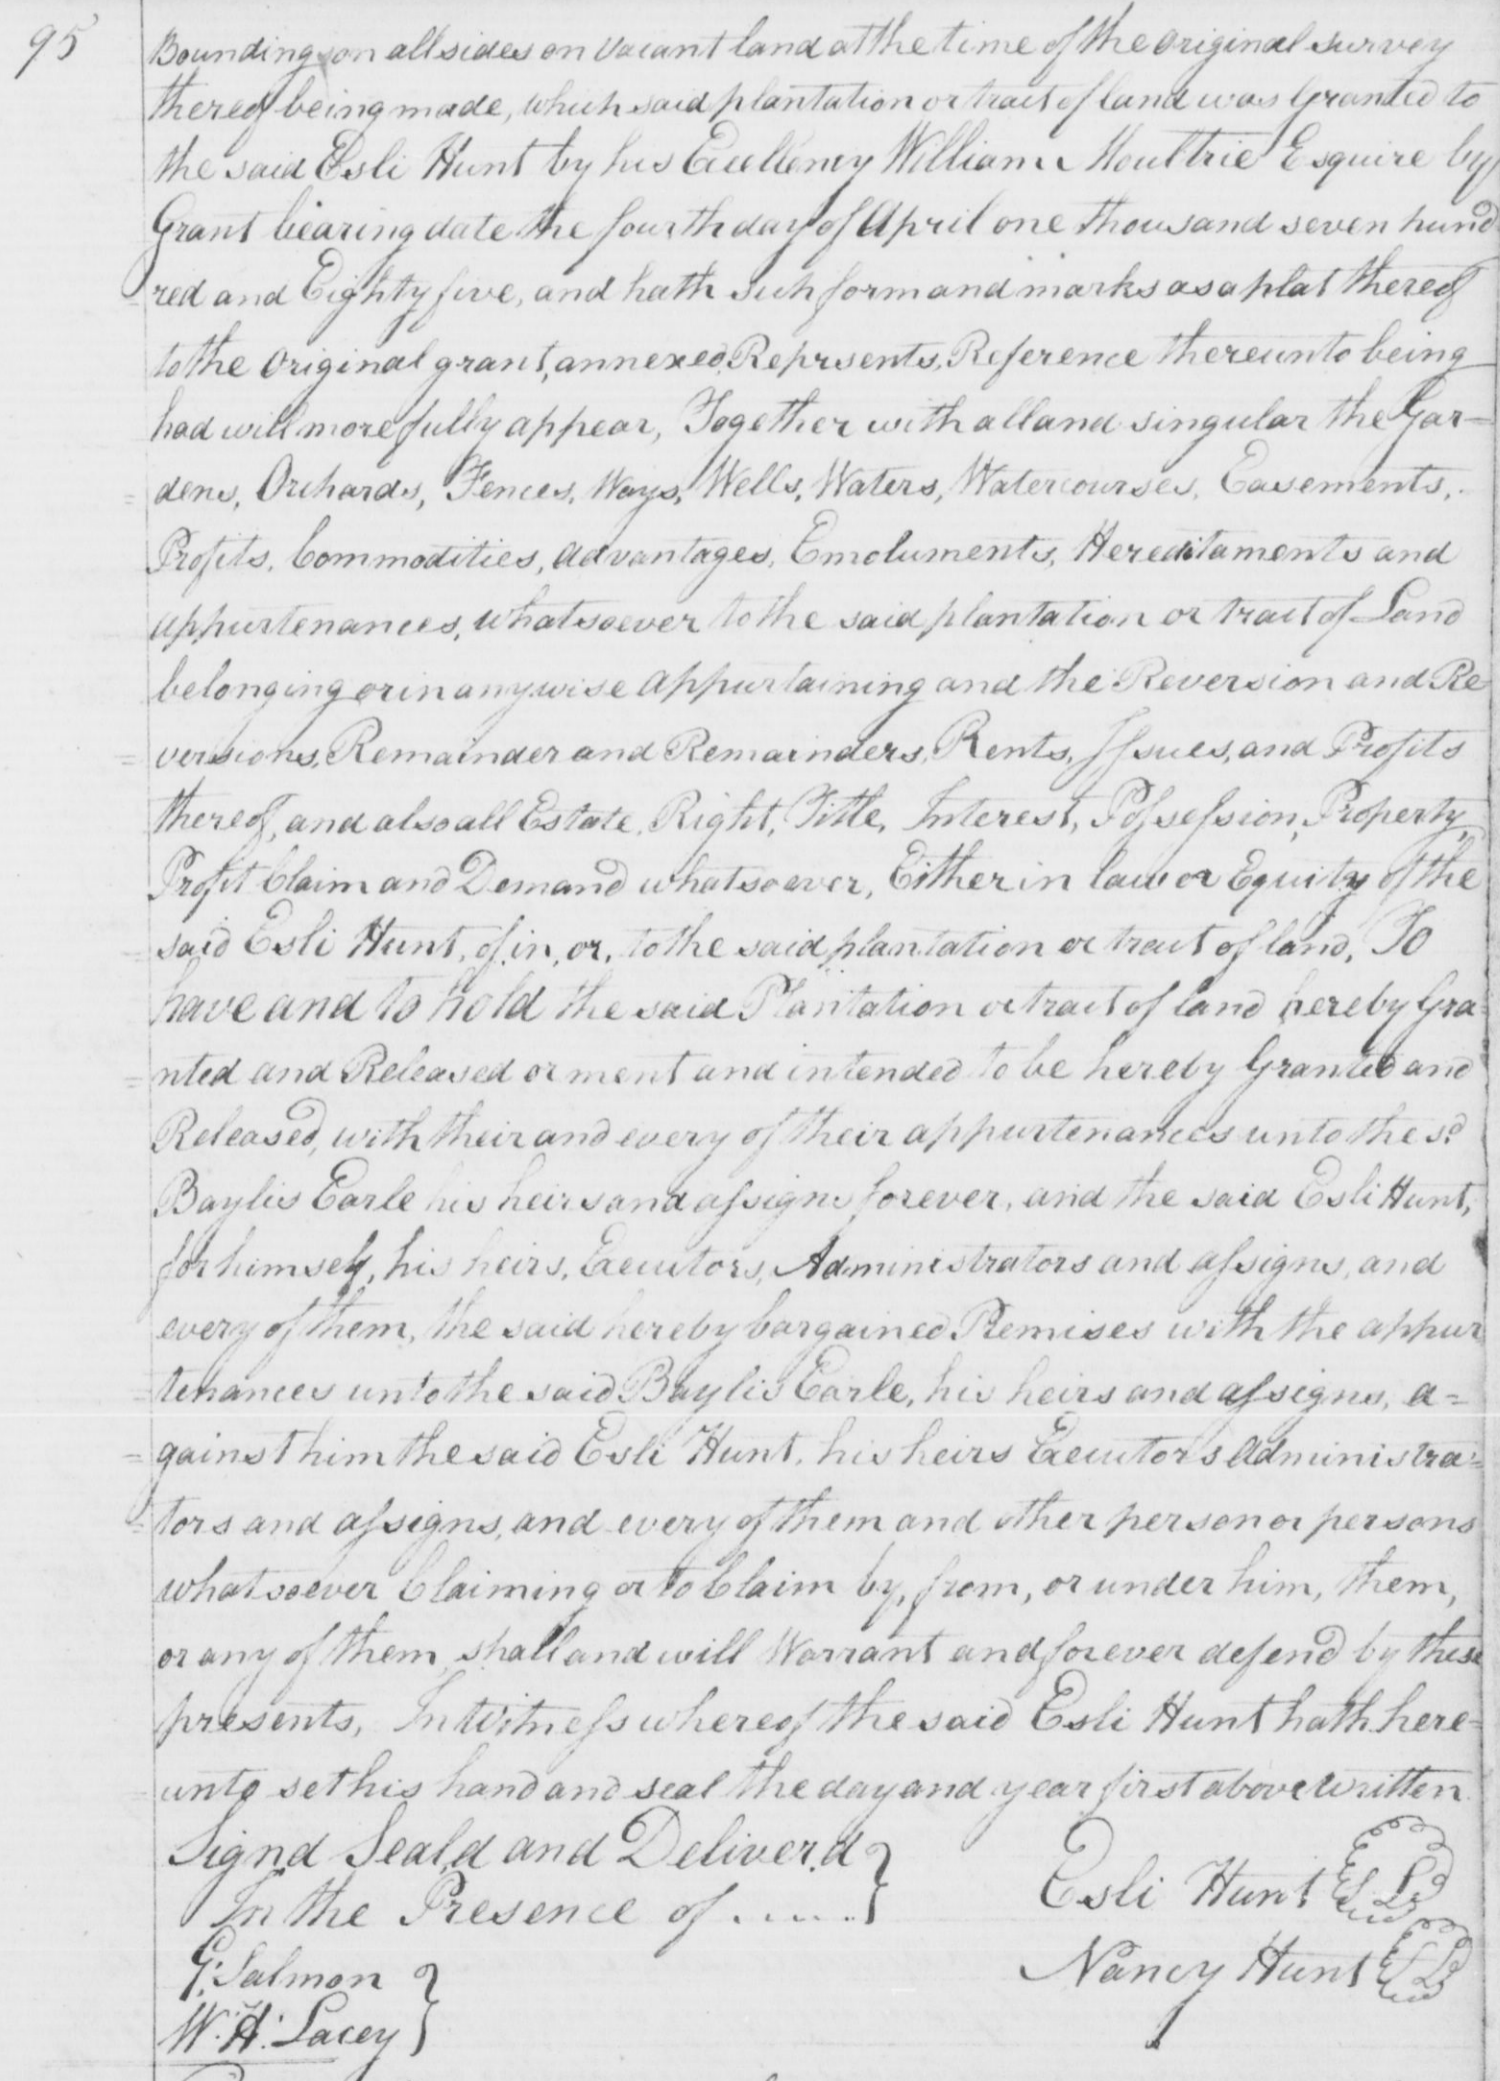 95
Bounding on all sides on vacant land at the time of the Original survey
thereof being made, which said plantation or tract of land was Granted to
the said Esli Hunt by his Excellency William Moultrie Esquire by
Grant bearing date the fourth day of April one thousand seven hund
=red and Eighty five, and hath such form and marks as a plat thereof
to the Original grant, annexed, Reprsents, Reference thereunto being
had will more fully appear, Together with all and singular the Gar=
=dens, Orchards, Fences, Ways, Wells, Waters, Watercourses, Easements,
Profits, Commodities, advantages, Emoluments, Hereditaments and
appurtenances, whatsoever to the said plantation or tract of Land
belonging or in anywise appurtaining and the Reversion and Re=
=versions, Remainder and Remainders, Rents, Issues, and Profits
thereof, and also all Estate, Right, Title, Interest, Possession, Property,
Profit Claim and Demand whatsoever, Either in law or Equity of the
said Esli Hunt, of, in, or, to the said plantation or tract of land, To
have and to hold the said Plantation or tract of land hereby Gra=
=nted and Released or ment and intended to be hereby Granted and
Released, with their and every of their appurtenances unto the sd
Baylis Earle his heirs and assigns forever, and the said Esli Hunt,
for himself, his heirs, Executors, Administrators and assigns, and
every of them, the said hereby bargained Premises with the appur
=tenances unto the said Baylis Earle, his heirs and assigns, a=
=gainst him the said Esli Hunt, his heirs Executors Administra=
=tors and assigns, and every of them and other person or persons
whatsoever Claiming or to Claim by, from, or under him, them,
or any of them, shall and will Warrant and forever defend by these
presents, In Witness whereof the said Esli Hunt hath here=
unto set his hand and seal the day and year first above Written
Signd Seald and Deliver,d } Esli Hunt LS
In the Presence of ......
G. Salmon } Nancy Hunt LS
W. H. Lacey